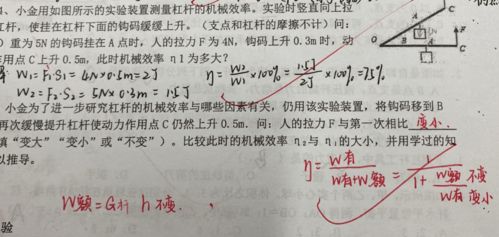 、小金用如图所示的实验装置测量杠杆的机械效率。实验时竖直向上拉
杠杆，使挂在杠杆下面的钩码缓缓上升。（支点和杠杆的摩擦不计）问：
重为5N的钩码挂在A点时，人的拉力F为4N，钩码上升0.3m时，动
作用点C上升0.5m，此时机械效率η1为多大？
W₁=F₁·S₁=4N×0.5m=2J
η=W₂/W₁×100%=1.5J/2J×100%=75%
W₂=F₂·S₂=5N×0.3m=1.5J
小金为了进一步研究杠杆的机械效率与哪些因素有关，仍用该实验装置，将钩码移到B
再次缓慢提升杠杆使动力作用点C仍然上升0.5m．问：人的拉力F与第一次相比 变小．
填“变大”“变小”或“不变”）。比较此时的机械效率η₂与η₁的大小，并用学过的知
以推导。
η=W有/(W有+W额)=1/(1+W额/W有) 不变 变小
W额=G杆 h 不变．
验
O B A C F
A